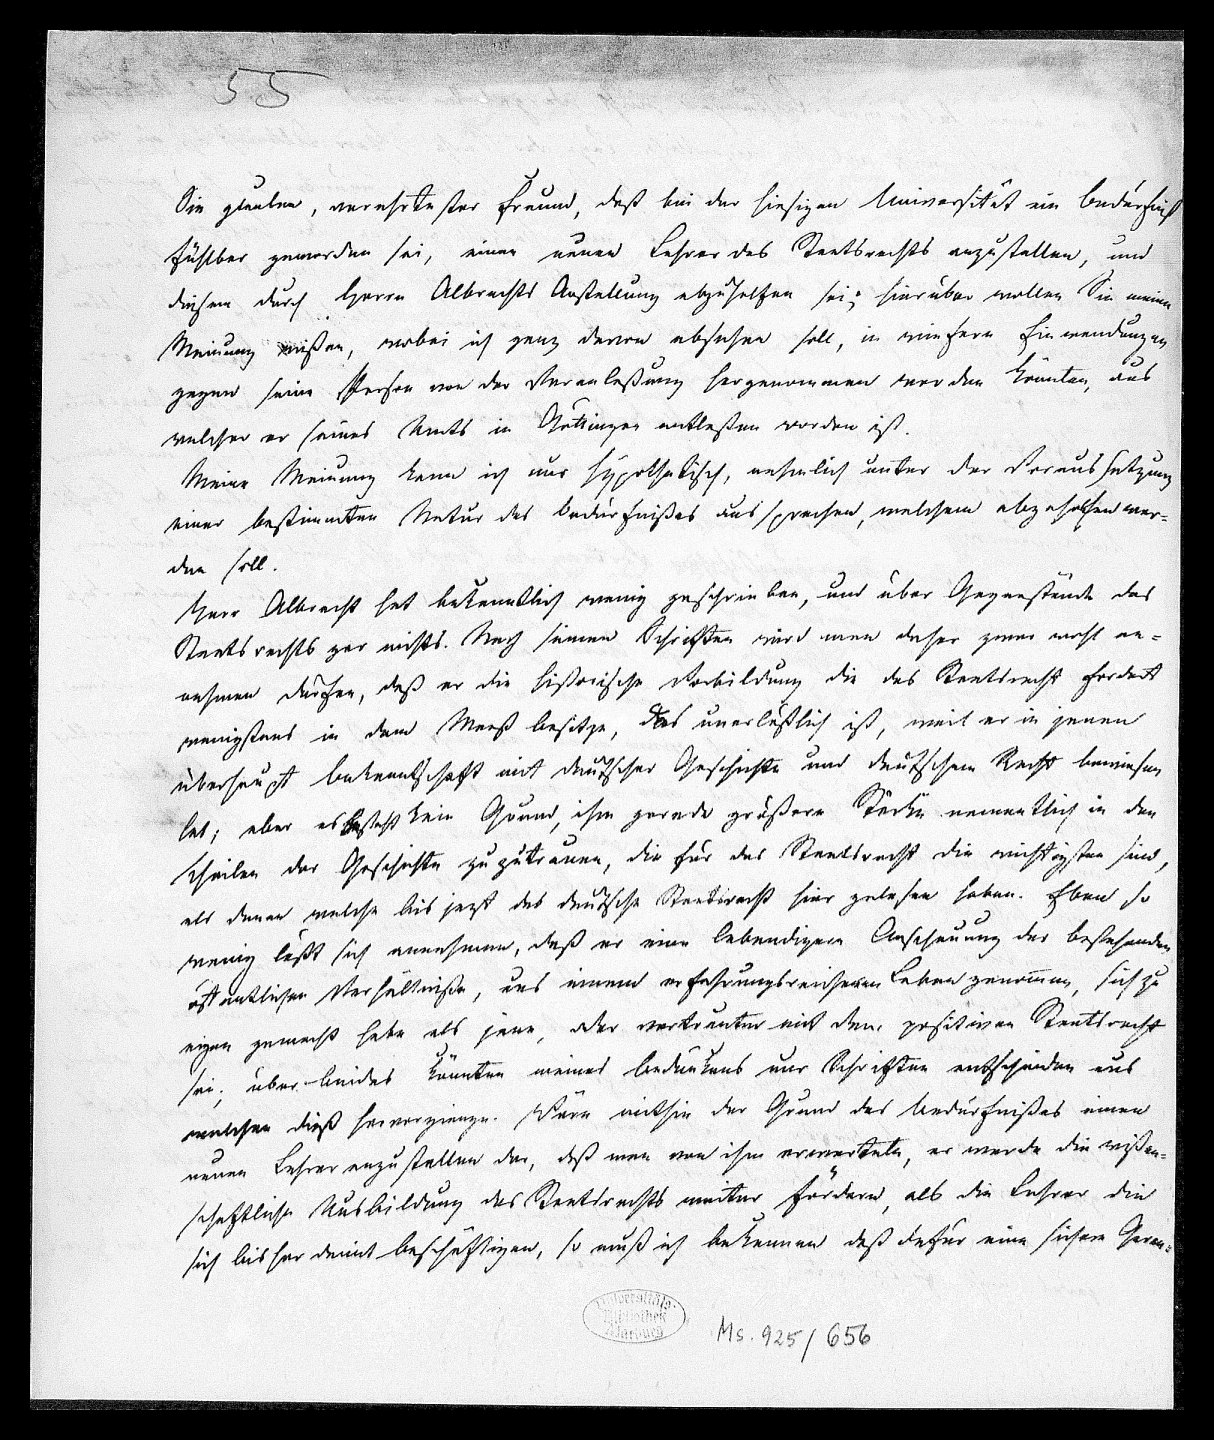 55
Sie glauben, verehrtester Freund, daß bei der hiesigen Universität ein Bedürfniß
fühlbar geworden sei, einen neuen Lehrer des Staatsrechts anzustellen, und
diesem durch Herrn Albrechts Anstellung abzuhelfen sei; hierüber wollen Sie meine
Meinung wißen, wobei ich ganz davon absehen soll, in wiefern Einwendungen
gegen seine Person von der Veranlaßung hergenommen werden könnten, aus
welcher er seines Amts in Göttingen entlaßen worden ist.
Meine Meinung kann ich nur hypothetisch, nehmlich unter der Voraussetzung
einer bestimmten Natur des Bedürfnißes aussprechen, welchem abgeholfen wer-
den soll.
Herr Albrecht hat bekanntlich wenig geschrieben, und über Gegenstände des
Staatsrechts gar nichts. Nach seinen Schriften wird man daher zwar wohl an-
nehmen dürfen, daß er die historische Vorbildung die das Staatsrecht fordert
wenigstens in dem Maaß besitze, das unerläßlich ist, weil er in jenen
überhaupt Bekanntschaft mit deutscher Geschichte und deutschem Recht bewiesen
hat; aber es besteht kein Grund, ihm gerade größere Stärke namentlich in den
Theilen der Geschichte zuzutrauen, die für das Staatsrecht die wichtigsten sind,
als denen welche bis jezt das deutsche Staatsrecht hier gelesen haben. Eben so
wenig läßt sich annehmen, daß er eine lebendigere Anschauung der bestehenden
öffentlichen Verhältniße, aus einem erfahrungsreicheren Leben genommen, sich zu
eigen gemacht habe als jene, oder vertrauter mit dem positiven Staatsrecht
sei; über beides könnten meines Bedünkens nur Schriften entscheiden aus
welchen dieß hervorgienge. Wäre mithin der Grund des Bedürfnißes einen
neuen Lehrer anzustellen der, daß man von ihm erwartete, er werde die wißen-
schaftliche Ausbildung des Staatsrechts weiter fördern, als die Lehrer die
sich bisher damit beschäftigen, so muß ich bekennen daß dafür eine sichere Garan-
Universitäts-
Bibliothek
Marburg
Ms. 925/656